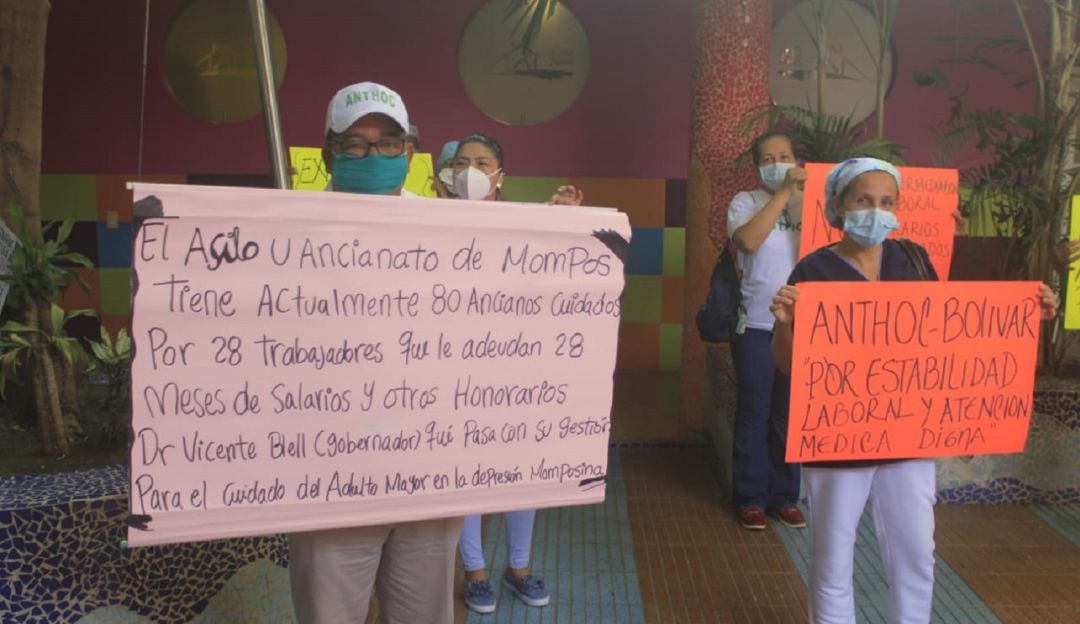 ANTHOC
EX
El Asilo U Ancianato de MomPos
Tiene Actualmente 80 Ancianos Cuidados
Por 28 Trabajadores que le adeudan 28
Meses de Salarios y otros Honorarios
Dr Vicente Blell (gobernador) qui Pasa con su gestión
Para el Cuidado del Adulto Mayor en la depresión Momposina
ANTHOC-BOLIVAR
"POR ESTABILIDAD
LABORAL Y ATENCION
MEDICA DIGNA"